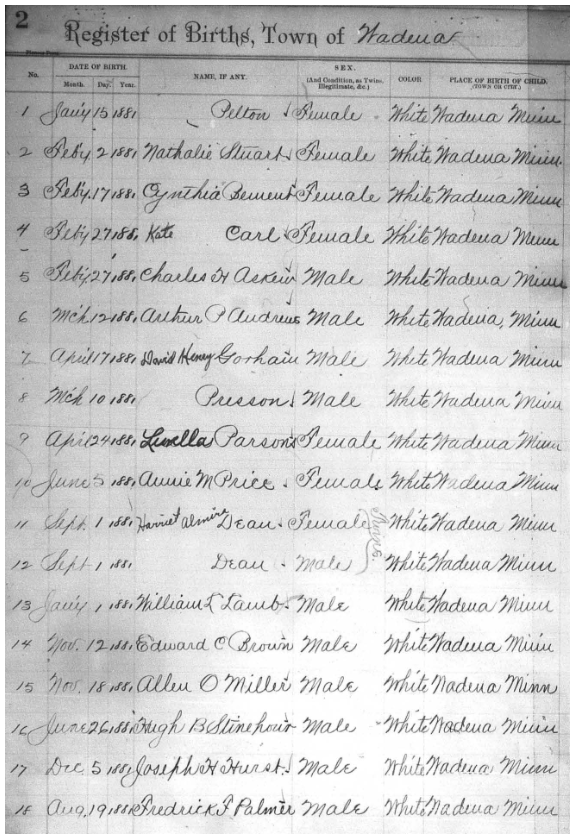 2
Register of Births, Town of Wadena
No.
DATE OF BIRTH.
Month. Day. Year.
NAME, IF ANY.
SEX.
(And Condition, as Twins, Illegitimate, &c.)
COLOR
PLACE OF BIRTH OF CHILD.
(TOWN OR CITY.)
1 Jan'y 15 1881 Pelton Female White Wadena Minn
2 Feb'y 2 1881 Nathalie Stuart Female White Wadena Minn.
3 Feb'y 17 1881 Cynthia Bement Female White Wadena Minn
4 Feb'y 27 188 Kate Carl Female White Wadena Minn
5 Feb'y 27 188 Charles H Askew Male White Wadena Minn
6 Mch 12 1881 Arthur P Andrews Male White Wadena, Minn
7 April 17 1881 David Henry Gorham Male White Wadena Minn
8 Mch 10 1881 Presson Male White Wadena Minn
9 April 24 1881 Luella Parsons Female White Wadena Minn
10 June 5 1881 Annie M Price Female White Wadena Minn
11 Sept 1 1881 Harriet Almira Dean Female White Wadena Minn
Twins.
12 Sept 1 1881 Dean Male White Wadena Minn
13 Jan'y 1 1881 William L Lamb Male White Wadena Minn
14 Nov. 12 1881 Edward C Brown Male White Wadena Minn
15 Nov. 18 1881 Allen O Miller Male White Wadena Minn
16 June 26 1881 Hugh B Stinehour Male White Wadena Minn
17 Dec 5 1881 Joseph H Hurst Male White Wadena Minn
18 Aug. 19 1881 Fredrick F Palmer Male White Wadena Minn